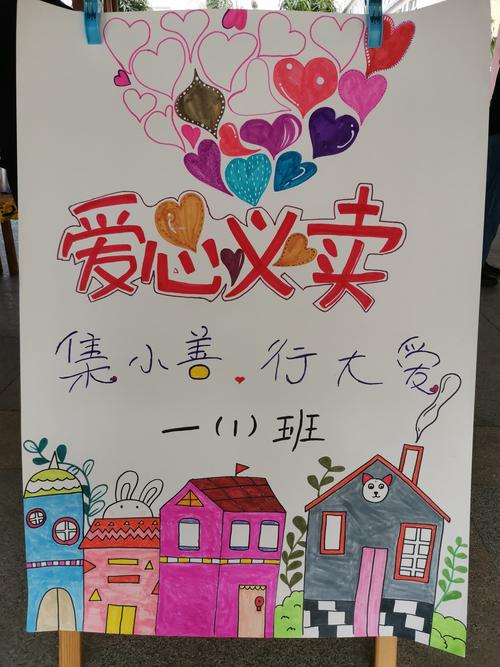 爱心义卖
集小善 行大爱
一(1)班